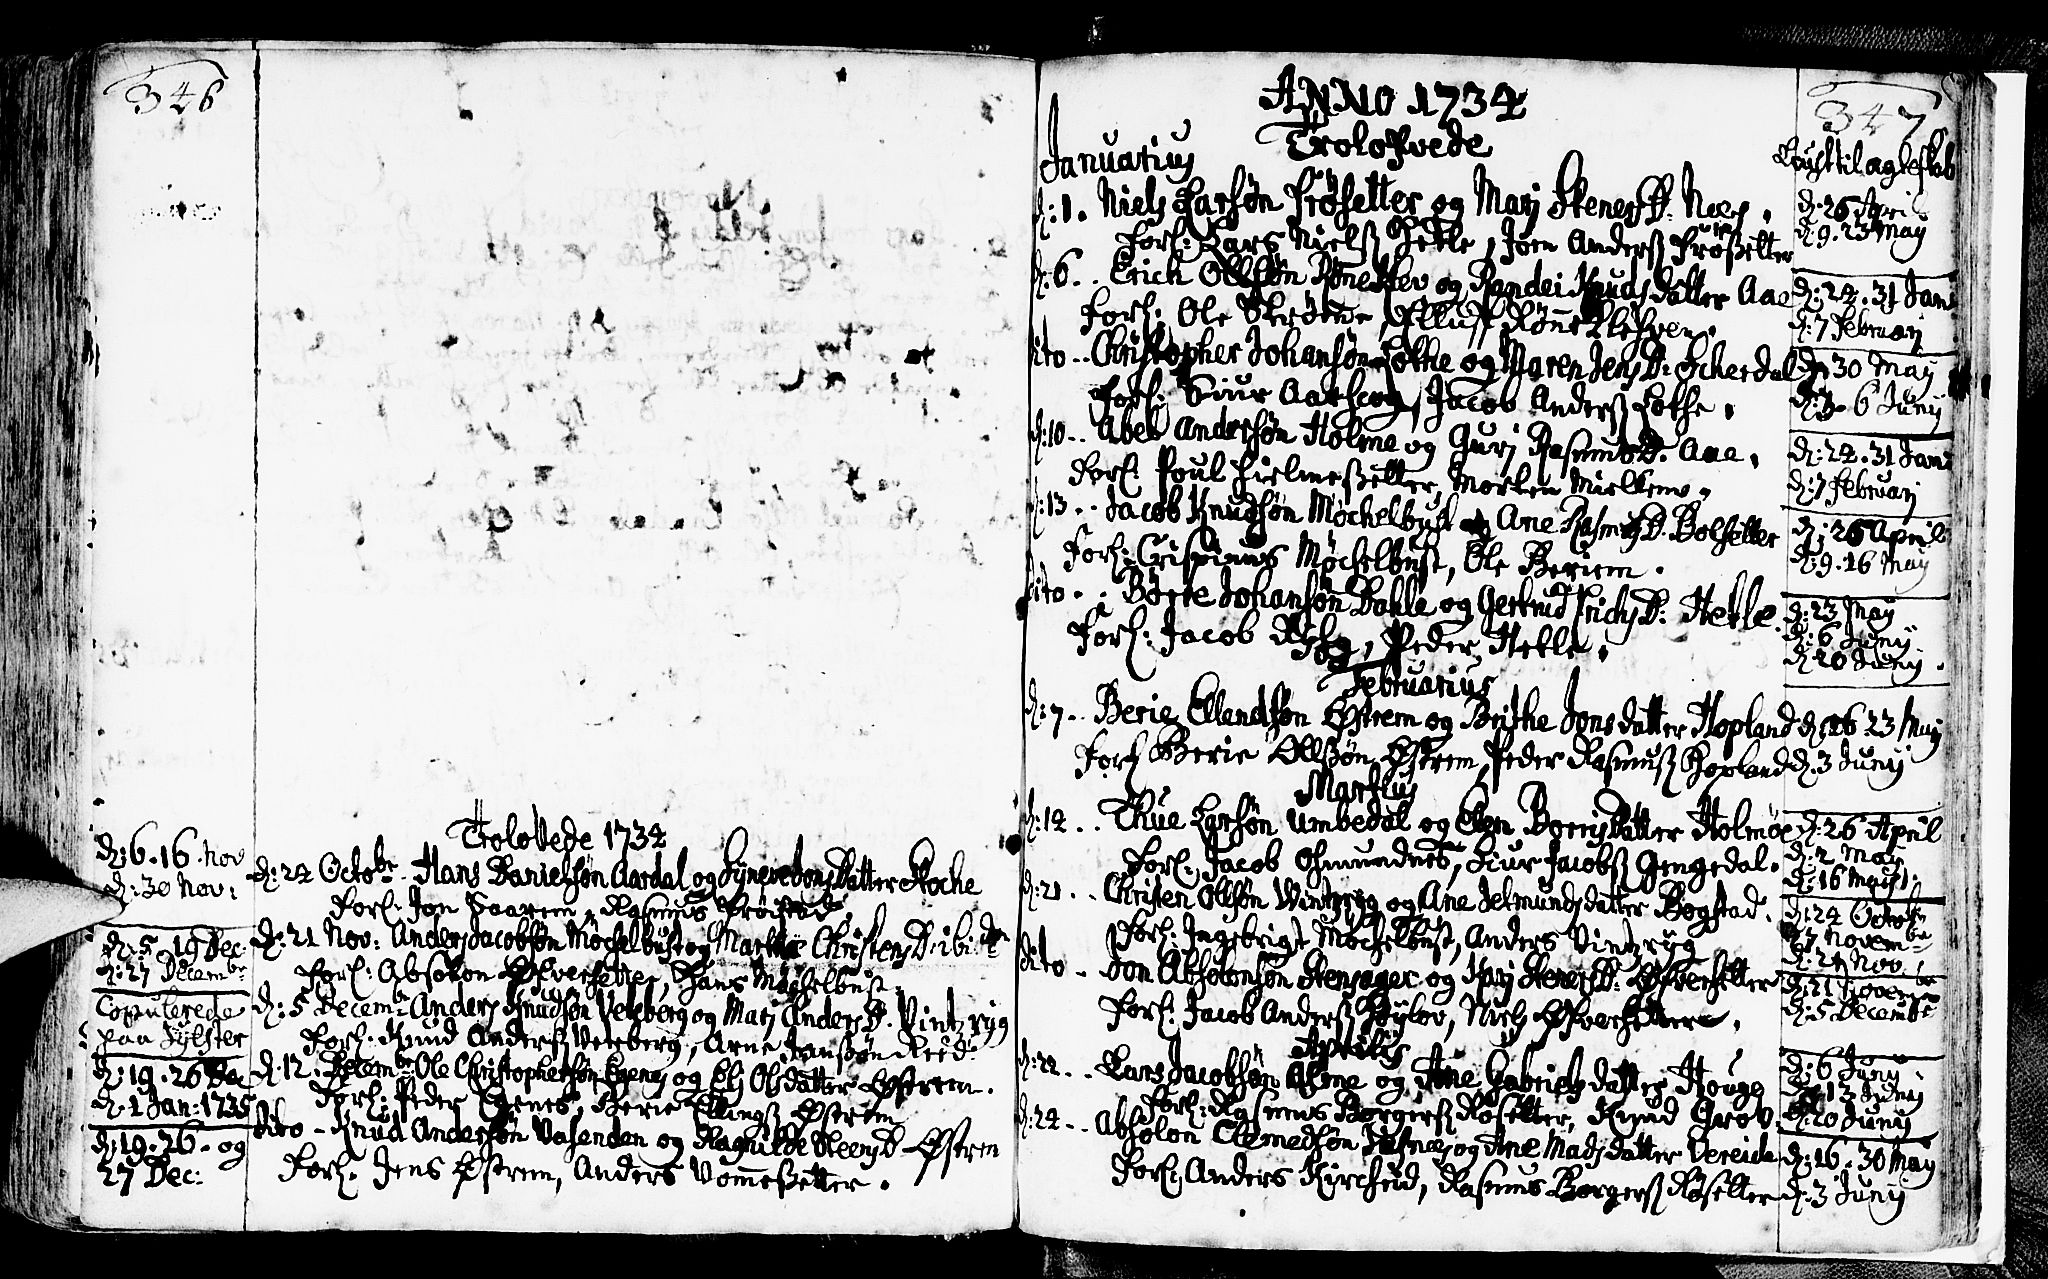 346
Trolovede 1734
d: 6. 16. Nov
d: 30 Nov:
d: 24 Octobr. Hans Danielsøn Aardal og Synneve Jons Datter Stoche
Forl: Jon Faarem, Rasmus Frøistad
d: 5. 19 Dec:
d: 27 Decembr
d: 21 Nov: Anders Jacobsøn Møchelbust og Marthe Christens
Forl: Absolon Øfversetter, Hans Møchelbust.
Copulerede
paa Sylster
d: 5 Decem: Anders Knudsøn Veteberg og Mari Anders D. Vintzryg
Forl: Knud Anderss Veteberg, Arne Janssøn Reed:
d: 19. 26 Dec
d. 1 Jan: 1735
d: 12. Decembr Ole Christophersøn Egenes og Eli Ols datter Østrem.
Forl: Peder Egenes, Berie Ellingss Østrem
d: 19. 26. og
27 Dec:
dito - Knud Andersøn Vasenden og Ragnilde Steens D Østrem
Forl: Jens Østrem, Anders Vommesetter.
347
ANNO 1734
Trolofvede
Januarius
Lyust til agteskab
d: 1. Niels Larsøn Frøsetter og Mari Steners D: Nees.
Forl: Lars Nielss Hetle, Joen Anderss Frøsetter
d: 26 April
d: 9. 23 May
d: 6.. Erich Ollsøn Røneklev og Randei Knuds datter Aae
Forl: Ole Skrøede, Ellufs Røneklefven.
d: 24. 31 Jan:
d: 7 Februarj
dito.. Christopher Johansøn Løthe og Maren Jens D: Ekerdal
Forl: Siur Aarskog, Jacob Anderss Løthe.
d: 30 May
d: 3. 6 Junij
d: 10.. Abel Andersøn Holme og Guri Rasmus D. Aae.
Forl: Poul Hielmesetter, Morten Mielkeno.
d: 24. 31 Jan:
d: 7 Februarj
d: 13.. Jacob Knudsøn Møchelbust og Ane Rasmus D: Bolsetter
Forl: Crispinus Møchelbust, Ole Beriem.
d: 26 April
d: 9. 16 May
dito.. Børte Johansøn Dahle og Gertrud Erichs D: Hetle.
Forl: Jacob, Peder Hetle.
d: 23 May
d: 6 Junij.
d: 20 Junij.
Februarius
d: 7.. Berie Ellendsøn Østrem og Brithe Jons datter Hopland
Forl: Berie Ollssøn Østrem, Peder Rasmuss Hopland
d: 16 23 May
d: 3 Junij
Martius
d: 14.. Thue Larsøn Umbedal og Eben Borris datter Holmøe
Forl: Jacob Osmundnes, Siur Jacobss Gengedal.
d: 26 April
d: 2 May
d: 16 May
d: 21.. Christen Ollsøn Vintzryg og Ane Jetmunds datter Bogstad.
Forl: Ingebrigt Møchelbust, Anders Vintzryg
d: 24 Octobr
d: 7 Novembr
d: 21 Nov.
dito - Jon Absolonsøn Stensager og Kari Steners D: Øfversetter
Forl: Jacob Anderss Bylov, Niels Øfversetter.
d: 21 Novembr
d: 5 Decembr
Aprilis
d: 22.. Lars Jacobsøn Alme og Ane Gabriels datter Houge
Forl: Rasmus Borgerss Røsetter, Knud Grov.
d: 6 Junij.
d: 13 Junij
d: 20 Junij
d: 24.. Absolon Clemedsøn Hesnes og Ane Mads datter Vereide
Forl: Anders Kircheid, Rasmus Borgerss Røsetter
d: 16. 30 May
d: 3 Junij